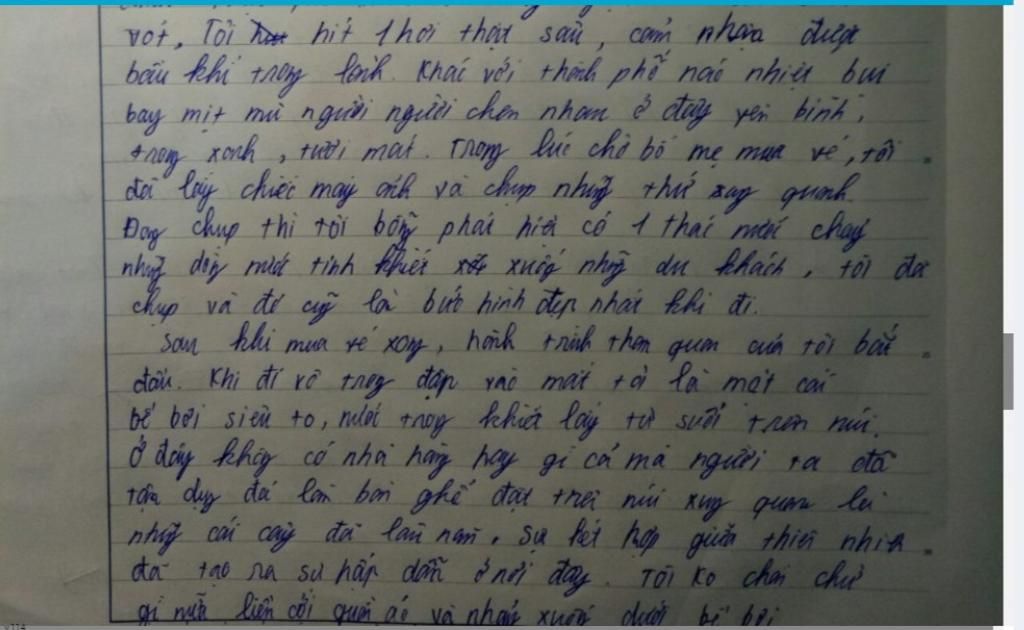 vót, Tôi hít 1 hơi thật sâu, cảm nhận được
bầu khí trong lành. Khác với thành phố náo nhiệt bụi
bay mịt mù người người chen nhau ở đây yên bình,
trong xanh, tươi mát. Trong lúc chờ bố mẹ mua vé, tôi
đã lấy chiếc máy ảnh và chụp những thứ xung quanh.
Đang chụp thì tôi bỗng phát hiện có 1 thác nước chảy
những dòng nước tinh khiết xuống những du khách, tôi đã
chụp và đó cũng là bức hình đẹp nhất khi đi.
Sau khi mua vé xong, hành trình tham quan của tôi bắt
đầu. Khi đi vô trong đập vào mắt tôi là một cái
bể bơi siêu to, nước trong khiết lấy từ suối trên núi.
Ở đây không có nhà hàng hay gì cả mà người ta đã
tận dụng đá làm bàn ghế đặt trên núi xung quanh là
những cái cây đã lâu năm, sự kết hợp giữa thiên nhiên
đã tạo ra sự hấp dẫn ở nơi đây. Tôi ko chần chừ
gì nữa liền cởi quần áo và nhảy xuống dưới bể bơi